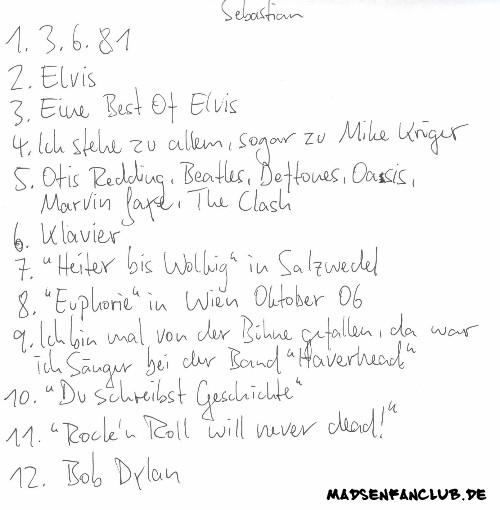 Sebastian
1. 3.6.81
2. Elvis
3. Eine Best Of Elvis
4. Ich stehe zu allem, sogar zu Mike Krüger
5. Otis Redding, Beatles, Deftones, Oasis,
Marvin Gaye, The Clash
6. Klavier
7. "Heiter bis Wolkig" in Salzwedel
8. "Euphorie" in Wien Oktober 06
9. Ich bin mal von der Bühne gefallen, da war
ich Sänger bei der Band "Haverhead"
10. "Du schreibst Geschichte"
11. "Rock'n Roll will never dead!"
12. Bob Dylan
MADSENFANCLUB.DE